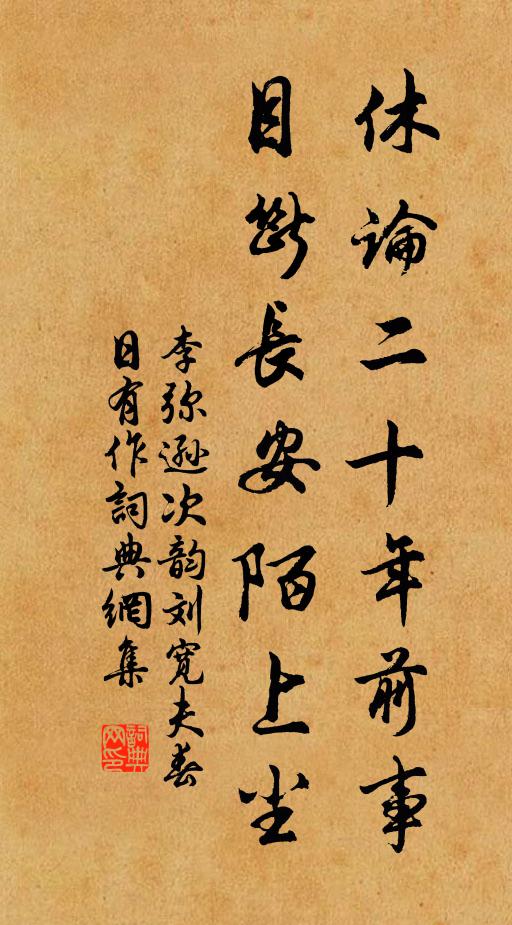 休論二十年前事
目斷長安陌上尘
李弥遜次韵刘寬夫春
日有作詞典網集
詞典
网印